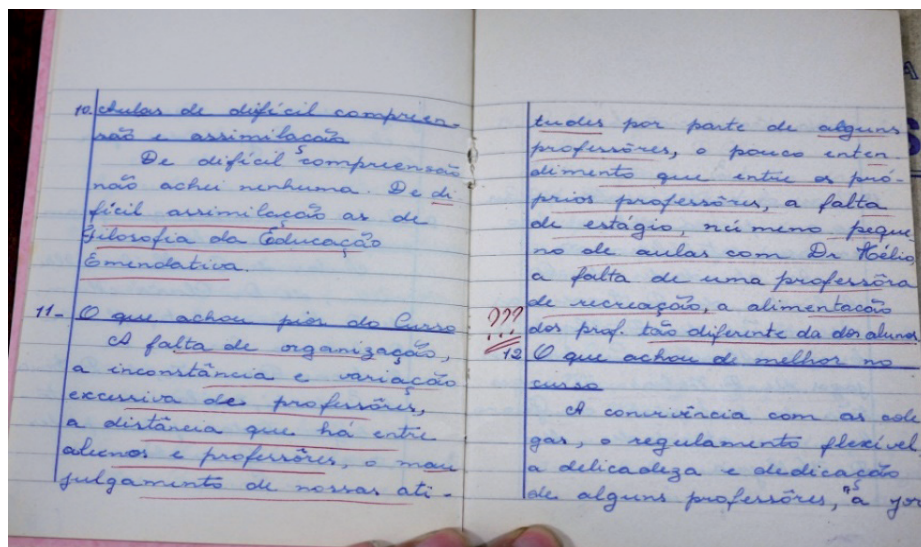 10. Aulas de difícil compreen-
são e assimilação
De difícil compreensão
não achei nenhuma. De di
fícil assimilação as de
Filosofia da Educação
Emendativa.
11- O que achou pior do Curso
A falta de organização,
a inconstância e variação
excessiva de professôres,
a distância que há entre
alunos e professôres, o mau
julgamento de nossas ati-
tudes por parte de alguns
professôres, o pouco enten
dimento que entre os pró-
prios professôres, a falta
de estágio, número peque
no de aulas com Dr Hélio,
a falta de uma professôra
de recreação, a alimentação
??? dos prof. tão diferente da dos alunos
12 O que achou de melhor no
curso
A convivência com as cole
gas, o regulamento flexível
a delicadeza e dedicação
de alguns professôres, a